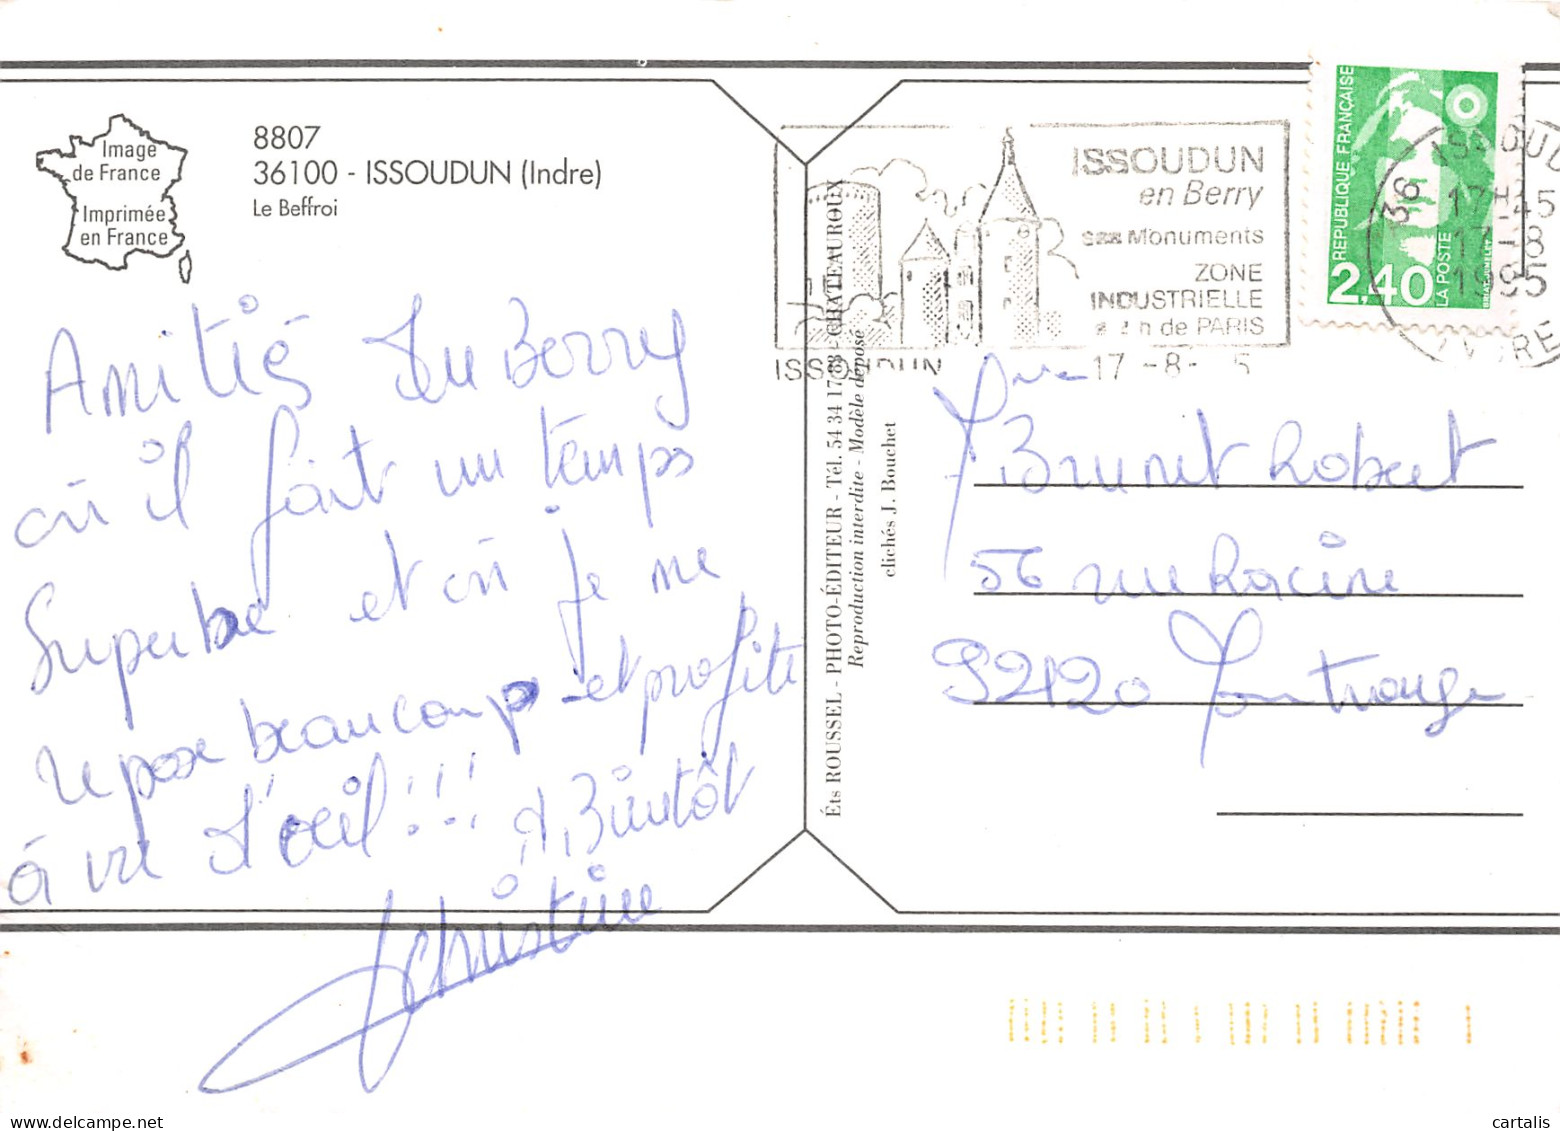 Image
de France
Imprimée
en France
8807
36100 - ISSOUDUN (Indre)
Le Beffroi
Amitiés du Berry
où il fait un temps
Superbe et où je me
repose beaucoup et profite
à vu d'œil!!! A Bientôt
Christine
Éts ROUSSEL - PHOTO-ÉDITEUR - Tél. 54 34 17 - CHATEAUROUX
Reproduction interdite - Modèle déposé
clichés J. Bouchet
ISSOUDUN
en Berry
ses Monuments
ZONE
INDUSTRIELLE
de PARIS
ISSOUDUN
17 -8-
RÉPUBLIQUE FRANÇAISE
2,40
LA POSTE
36 ISSOUDU
17H45
17-8
1995
INDRE
Brunet Robert
56 rue Racine
92120 Montrouge
cartalis